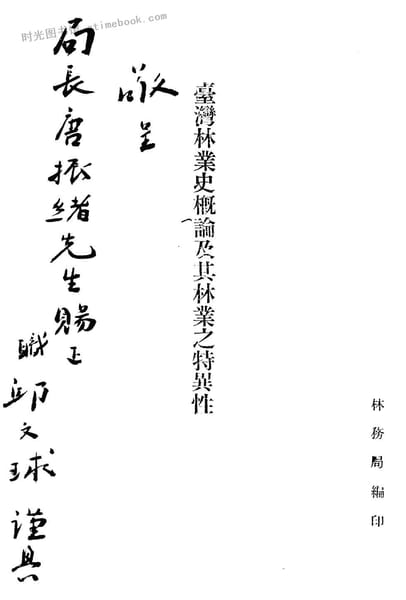 时光图书 timebook.com
林務局編印
臺灣林業史概論及其林業之特異性
敬呈
局長唐振緒先生賜正
職邱文球謹具